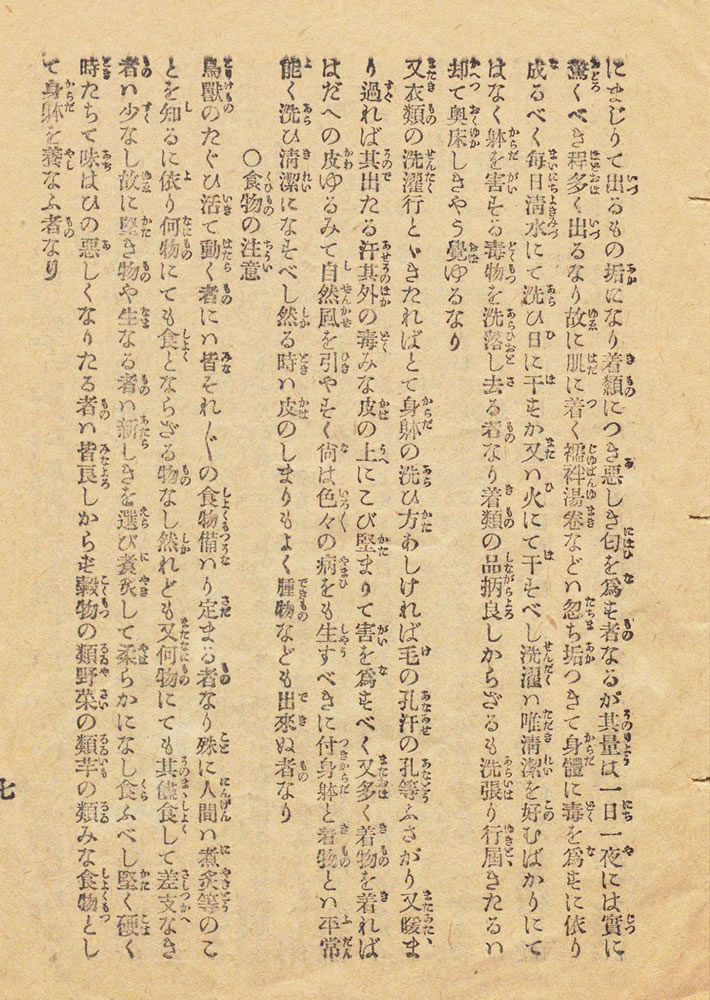 にまじりて出るもの垢になり着類につき悪しき匂を為す者なるが其量は一日一夜には實に
驚くべき程多く出るなり故に肌に着く襦袢湯巻などハ忽ち垢つきて身體に毒を為すに依り
成るべく毎日清水にて洗ひ日に干すか又ハ火にて干すべし洗濯ハ唯清潔を好むばかりにて
はなく躰を害する毒物を洗落し去る者なり着類の品柄良しからざるも洗張り行届きたるハ
却て奥床しきやう覺ゆるなり
又衣類の洗濯行とゞきたればとて身躰の洗ひ方あしければ毛の孔汗の孔等ふさがり又暖ま
り過れば其出たる汗其外の毒みな皮の上にこび堅まりて害を為すべく又多く着物を着れば
はだへの皮ゆるみて自然風を引やすく尚は色々の病をも生すべきに付身躰と着物とハ平常
能く洗ひ清潔になすべし然る時ハ皮のしまりもよく腫物なども出來ぬ者なり
〇食物の注意
鳥獸のたぐひ活て動く者にハ皆それ〳〵の食物備ハり定まる者なり殊に人間ハ煮炙等のこ
とを知るに依り何物にても食とならざる物なし然れども又何物にても其儘食して差支なき
者ハ少なし故に堅き物や生なる者ハ新しきを選び煮炙して柔らかになし食ふべし堅く硬く
時たちて味はひの悪しくなりたる者ハ皆良しからず穀物の類野菜の類芋の類みな食物とし
て身躰を養なふ者なり
七